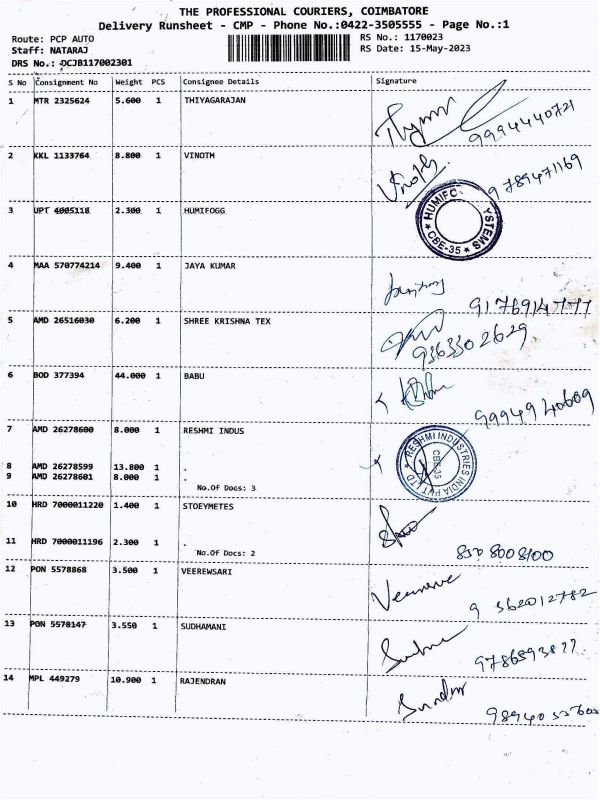 THE PROFESSIONAL COURIERS, COIMBATORE
Delivery Runsheet - CMP - Phone No.:0422-3505555 - Page No.:1
Route: PCP AUTO
RS No.: 1170023
Staff: NATARAJ
RS Date: 15-May-2023
DRS No.: DCJB117002301
S No Consignment No Weight PCS Consignee Details Signature
1 MTR 2325624 5.600 1 THIYAGARAJAN
9994440721
2 KKL 1133764 8.800 1 VINOTH
Vinoth
9789471169
3 UPT 4005118 2.300 1 HUMIFOGG
HUMIFO SYSTEMS
★ CBE-35 ★
4 MAA 570774214 9.400 1 JAYA KUMAR
9176914777
5 AMD 26516030 6.200 1 SHREE KRISHNA TEX
9363302629
6 BOD 377394 44.000 1 BABU
9994940609
7 AMD 26278600 8.000 1 RESHMI INDUS
RESHMI INDUSTRIES INDIA PVT LTD
CBE-35
8 AMD 26278599 13.800 1 .
9 AMD 26278601 8.000 1 .
No.Of Docs: 3
10 HRD 7000011220 1.400 1 STOEYMETES
11 HRD 7000011196 2.300 1 .
No.Of Docs: 2
8508008100
12 PON 5578868 3.500 1 VEEREWSARI
9362012782
13 PON 5578147 3.550 1 SUDHAMANI
14 MPL 449279 10.900 1 RAJENDRAN